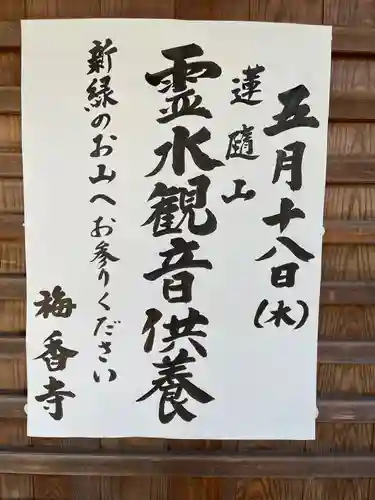 五月十八日(水)
蓮隨山
霊水観音供養
新緑のお山へお参りください
梅香寺